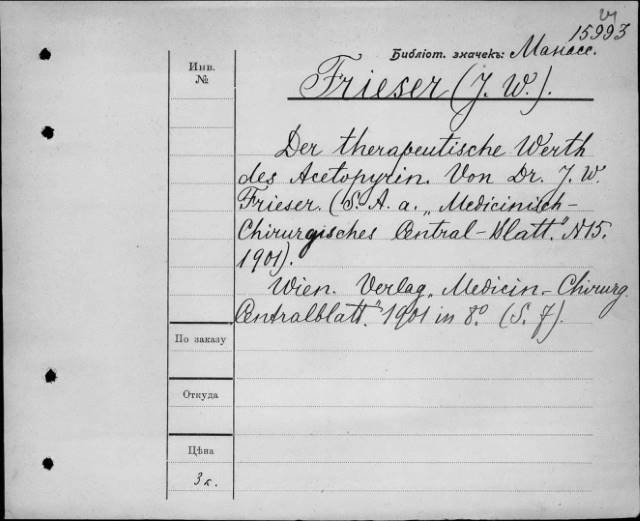 15993
Библіот. значекъ: Манасс.
Инв.
№
Frieser (J. W.).
Der therapeutische Werth
des Acetopyrin. Von Dr. J. W.
Frieser. (S. A. a. „Medicinisch-
Chirurgisches Central-Blatt." N15.
1901).
Wien. Verlag „Medicin.-Chirurg.
Centralblatt." 1901 in 8º. (S. 7).
По заказу
Откуда
Цѣна
3 к.